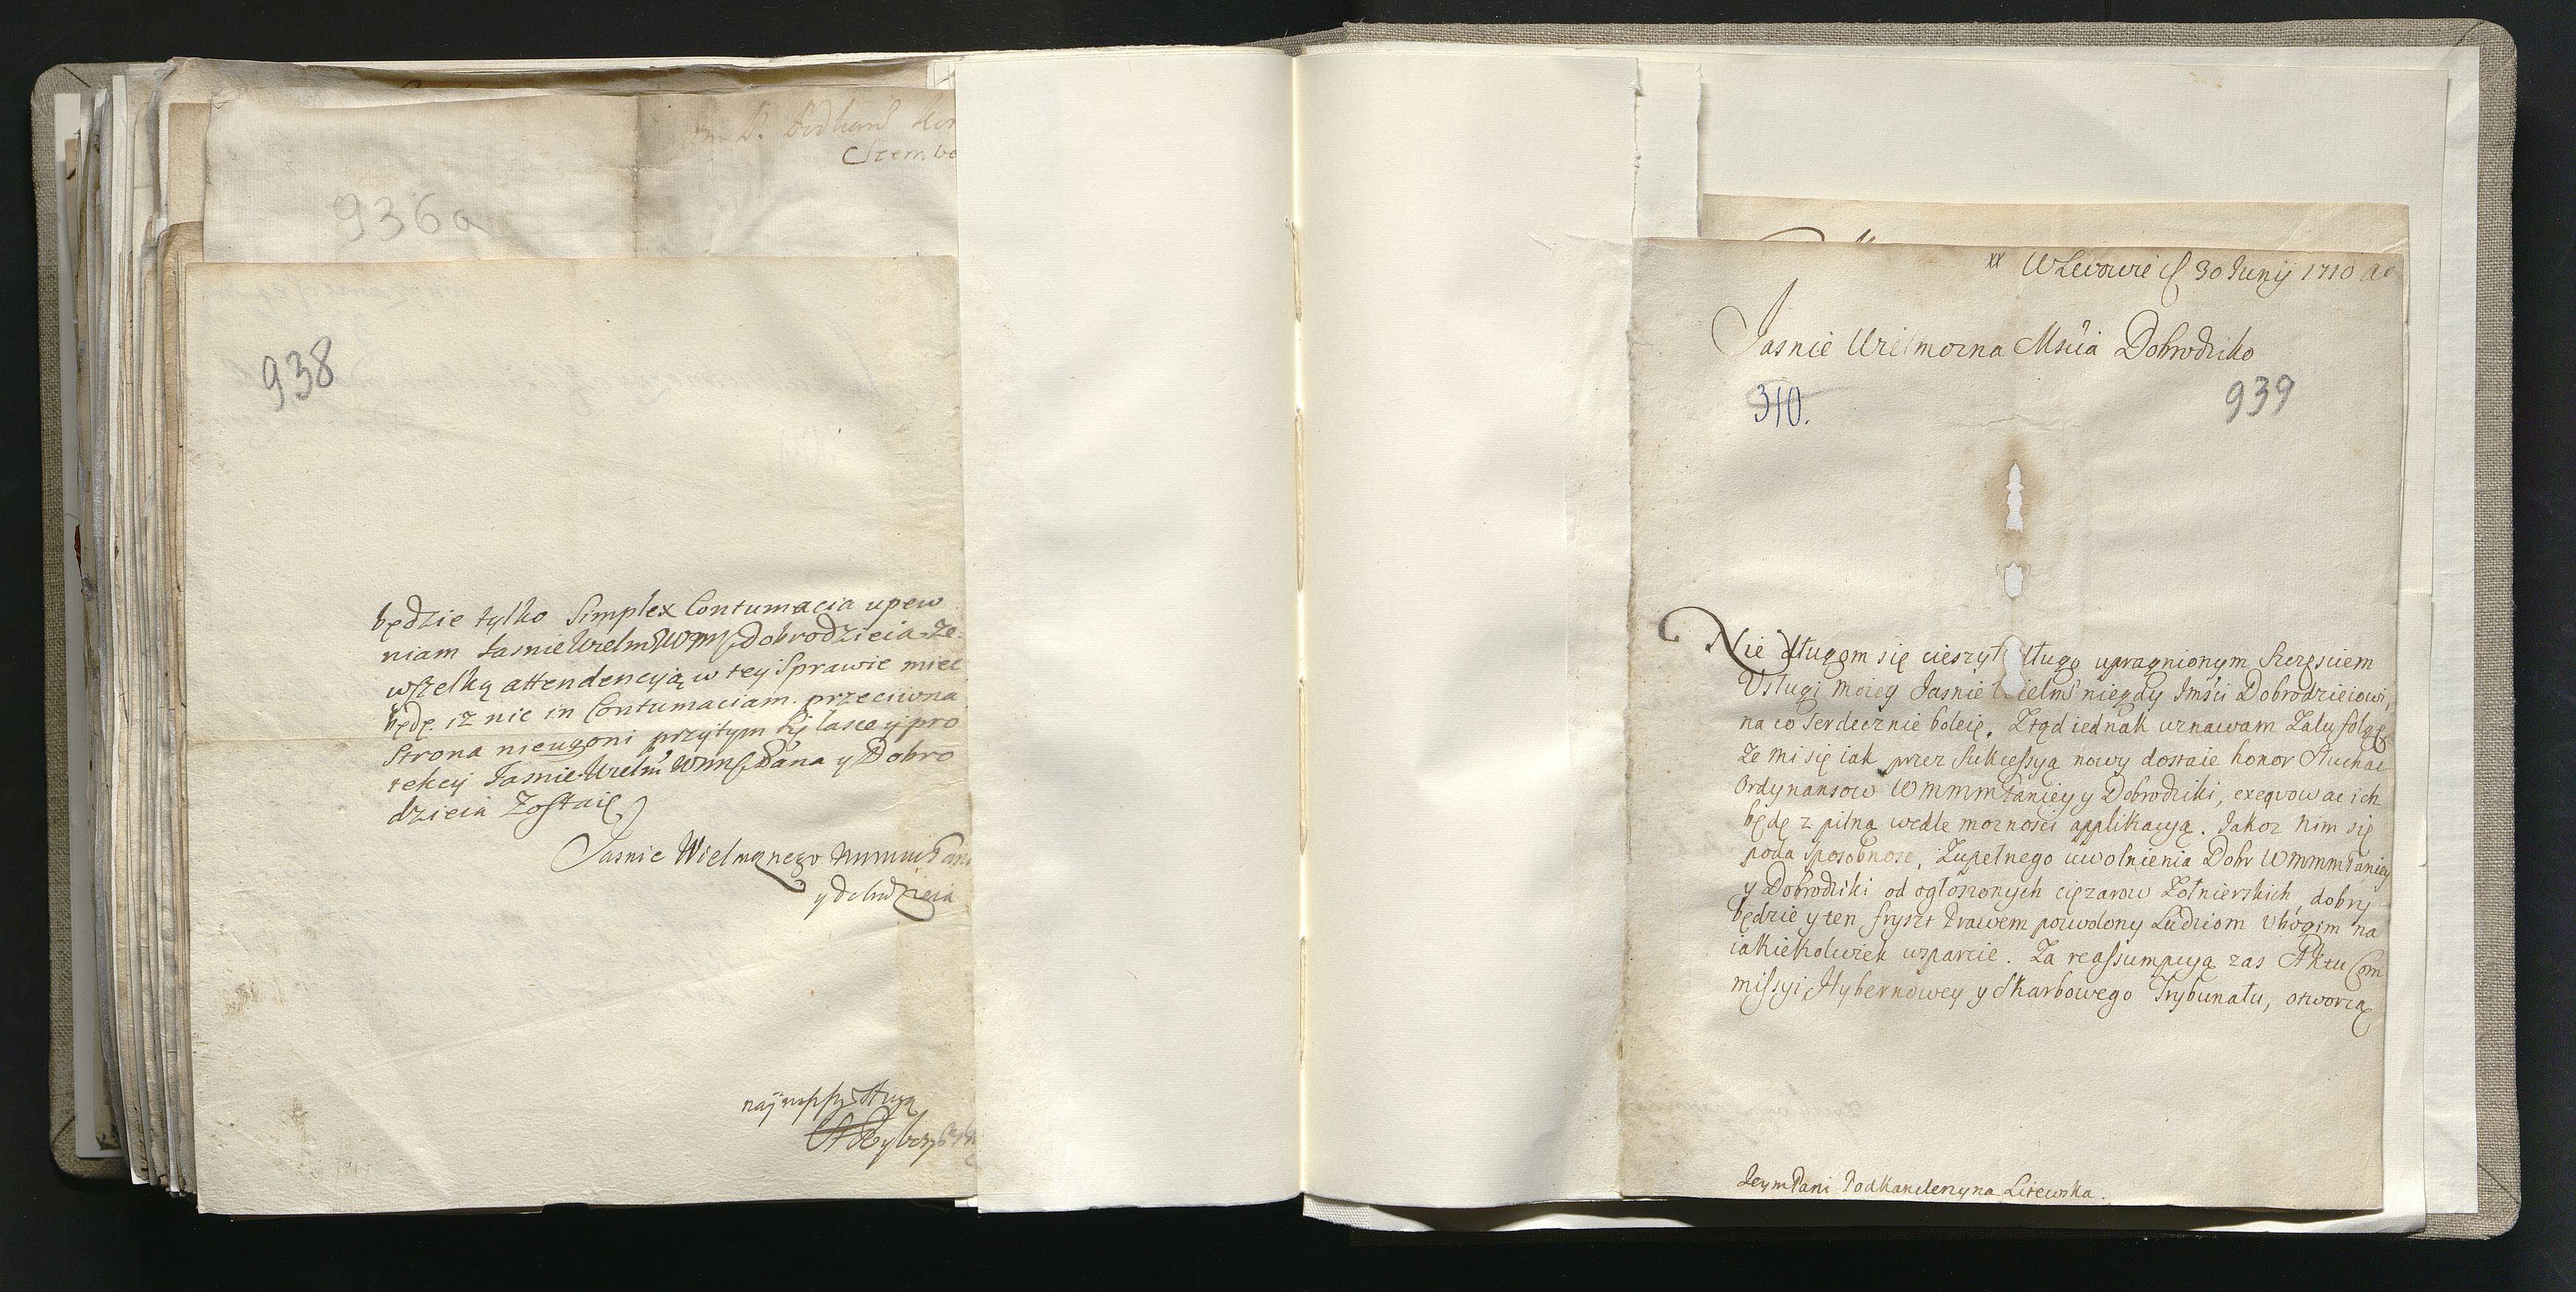 936a
938
będzie tylko Simplex Contumacia upew
niam Jasnie Wielm Dobrodzieia że
wszelką attendencyią w tey Sprawie mieć
będę iż nic in Contumaciam przeciwna
Strona nieugoni przytym łasce y pro
tekcij Jasnie Wielm Pana y Dobro
dzieia Zostaię
Jasnie Wielmoznego
y dobrodzieia
W Lwowie d 30 Junij 1710
Jasnie Wielmozna Mścia Dobrodziko
310.
939
Nie długom się cieszył długo upragnionym Szczęsciem
Usługi moiey Jasnie Wielm niegdy Jmści Dobrodzieiowi,
na co serdecznie boleię. Ztąd iednak uznawam Zalu folgę
Ze mi się iak przez Sukcessyą nowy dostaie honor Słuchac
Ordynansow WMMMPaniey y Dobrodziki, exeqvowac ich
będę z pilną wedle moznosci applikacyą. Jakoz nim się
poda sposobnosc, Zupełnego uwolnienia Dobr WMMMPaniey
y Dobrodziki od ogłoszonych cięzarow Zołnierskich, dobry
będzie y ten fryszt Prawem pozwolony Ludziom Ubogim na
iakiekolwiek wsparcie. Za reassumpcyą zas Aktu Com
missyi Hybernowey y Skarbowego Trybunału, otworzą
JeymPani Podkanclerzyna Litewska.